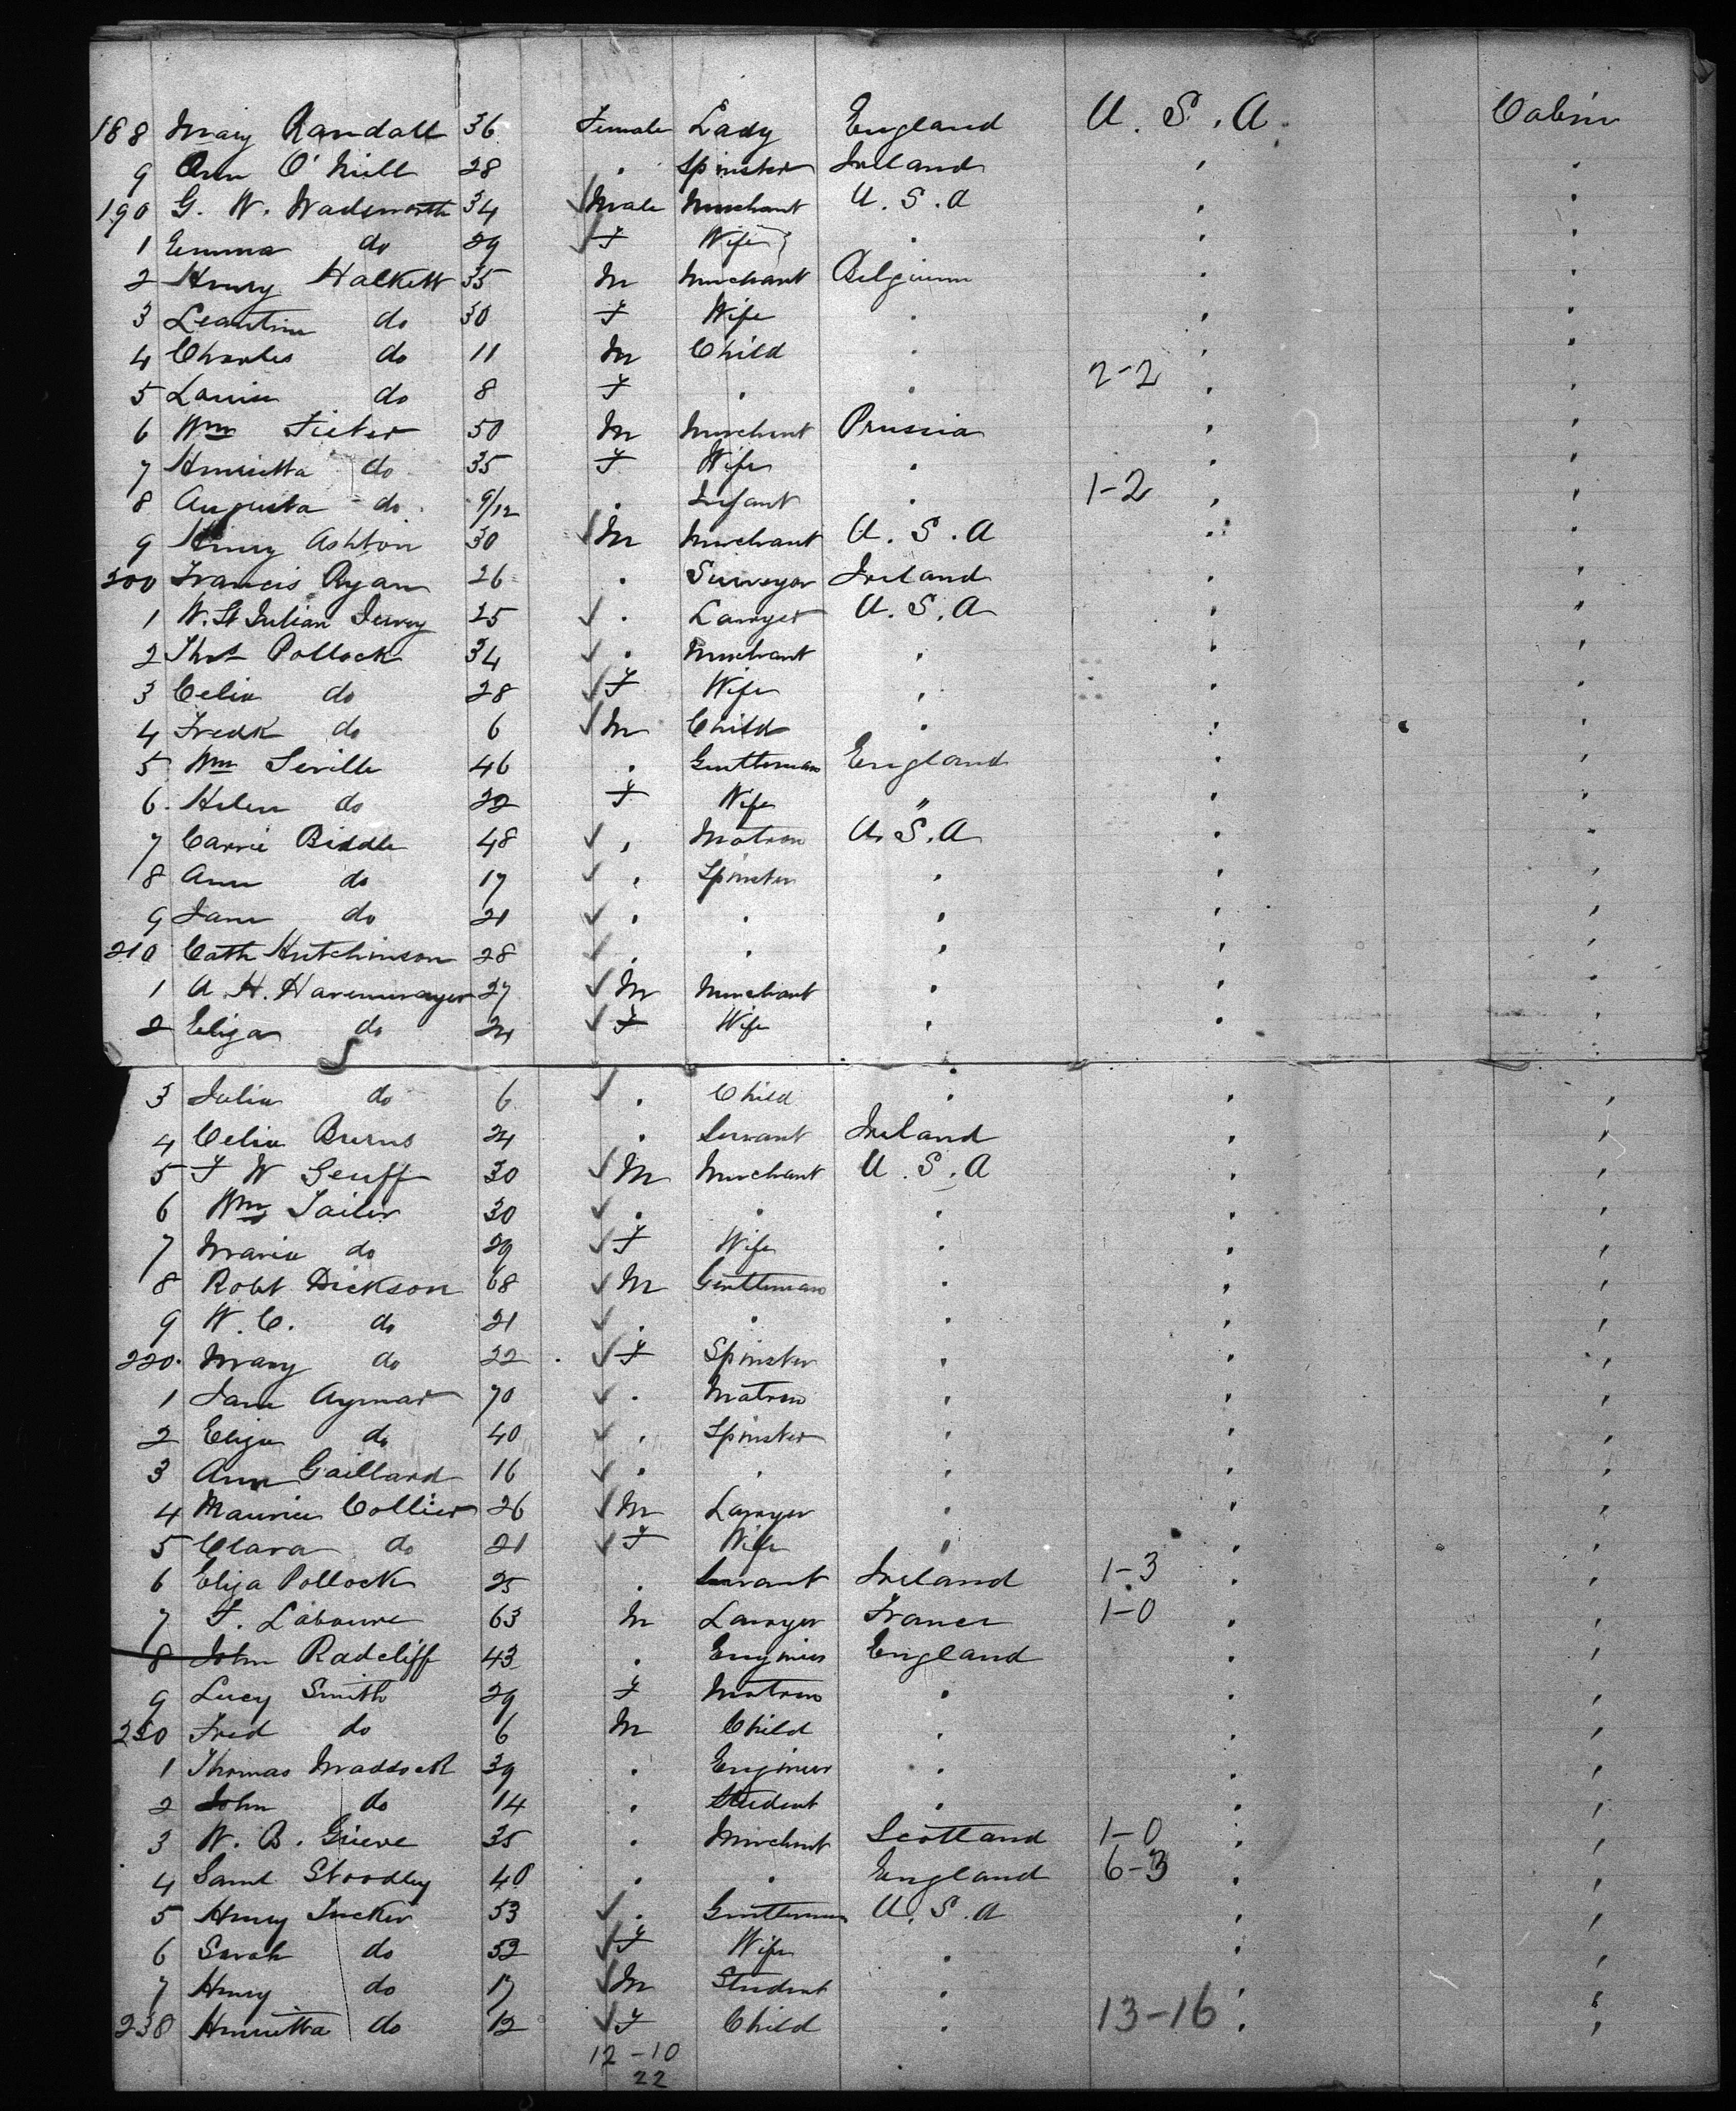 188 Mary Randall 36 Female Lady England U. S. A Cabin
9 Ann O'Neill 28 . Spinster Ireland , .
190 G. W. Wadsworth 34 ✓ Male Merchant U. S. A , .
1 Emma do 29 ✓ F Wife . , .
2 Henry Halkett 35 M Merchant Belgium , .
3 Leantine do 30 F Wife . , ,
4 Charles do 11 M Child . , ,
5 Louisa do 8 F . . 2-2 , ,
6 Wm 50 M Merchant Prussia , ,
7 Henrietta do 35 F Wife . , ,
8 Augusta do 9/12 . Infant . 1-2 , ,
9 Henry Ashton 30 ✓ M Merchant U. S. A , .
200 Francis Ryan 26 . Surveyor Ireland , ,
1 W. St Julian Jervey 25 ✓ . Lawyer U. S. A , "
2 Thos Pollock 34 ✓ . Merchant , , ,
3 Celia do 28 ✓ F Wife , , .
4 Fredk do 6 ✓ M Child . , ,
5 Wm Seville 46 . Gentleman England , ,
6 Helen do 22 F Wife " , ,
7 Carrie Biddle 48 ✓ , Matron U. S. A , -
8 Ann do 17 ✓ , Spinster , , ,
9 Jane do 21 ✓ . . , , ,
210 Cath Hutchinson 28 ✓ . . , , ,
1 A. H. Havemeyer 27 ✓ M Merchant . , .
2 Eliza do 24 ✓ F Wife , . .
3 Julia do 6 ✓ . Child . , ,
4 Celia Burns 24 . Servant Ireland , ,
5 F W Geuff 30 ✓ M Merchant U. S. A , ,
6 Wm Sailer 30 ✓ . . . , ,
7 Maria do 29 ✓ F Wife . , ,
8 Robt Dickson 68 ✓ M Gentleman . , ,
9 W. C. do 21 ✓ . . . , ,
220 Mary do 22 ✓ F Spinster , , ,
1 Jane Aymar 70 ✓ . Matron , , ,
2 Eliza do 40 ✓ , Spinster , , ,
3 Ann Gaillard 16 ✓ . . , , ,
4 Maurice Collier 26 ✓ M Lawyer . , ,
5 Clara do 21 ✓ F Wife , , ,
6 Eliza Pollock 25 . Servant Ireland 1-3 , ,
7 F. Laboure 63 M Lawyer France 1-0 , ,
8 John Radcliff 43 . Engineer England . ,
9 Lucy Smith 29 F Matron . . ,
230 Fred do 6 M Child . , ,
1 Thomas Maddock 39 . Engineer . , ,
2 John do 14 . Student . , ,
3 W. B. Grieve 35 . Merchant Scotland 1-0 , ,
4 Saml Stoodley 40 . . England 6-3 , ,
5 Henry Tucker 53 ✓ . Gentleman U. S. A , ,
6 Sarah do 52 ✓ F Wife . , ,
7 Henry do 17 ✓ M Student . , ,
238 Henrietta do 12 ✓ F Child . 13-16 , ,
12-10
22